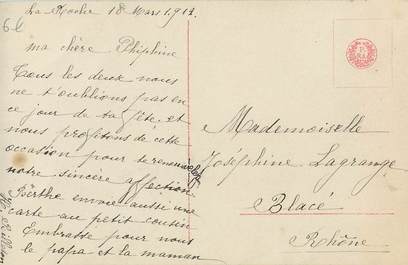 La Roche 18 Mars 1914
ma chère Phiphine
Tous les deux nous
ne t'oublions pas en
ce jour de ta fête et
nous profitons de cette
occasion pour te renouveler
notre sincère affection
Berthe envoie aussi une
carte au petit cousin
Embrasse pour nous
le papa et la maman
Mademoiselle
Joséphine Lagrange
Blacé
Rhône